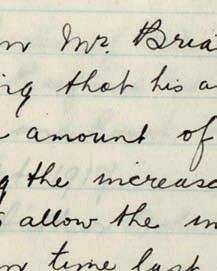 Mr. Bria
that his a
amount of
the increase
allow the in
time last